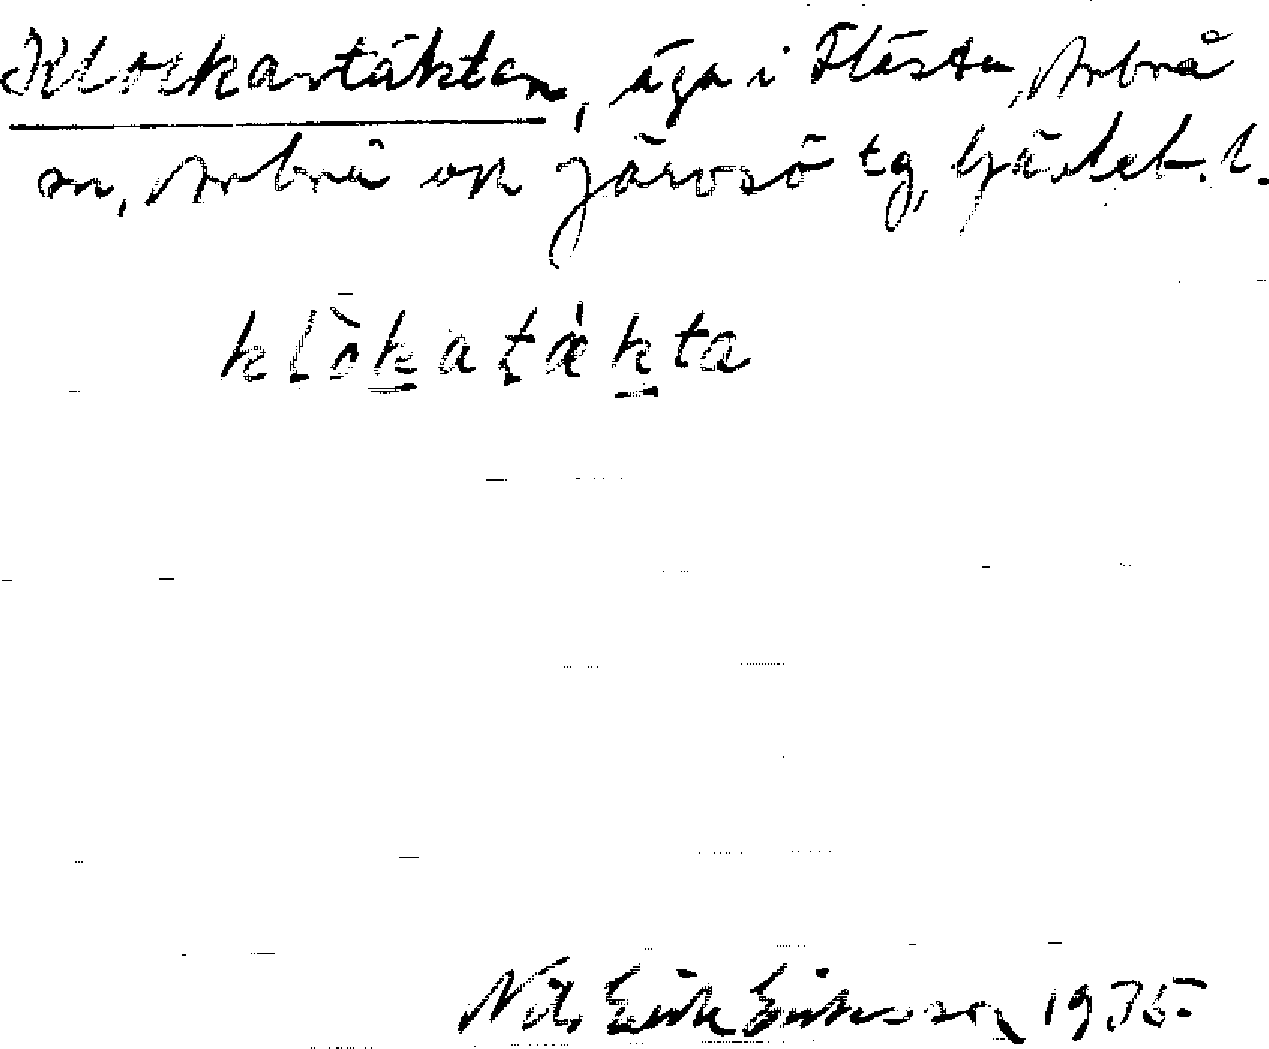 Klockartäkten, äga i Flästa, Arbrå
sn, Arbrå och Järvsö tg, Gävleb. l.
klòkatǽkta
Nils Erik Eriksson 1935